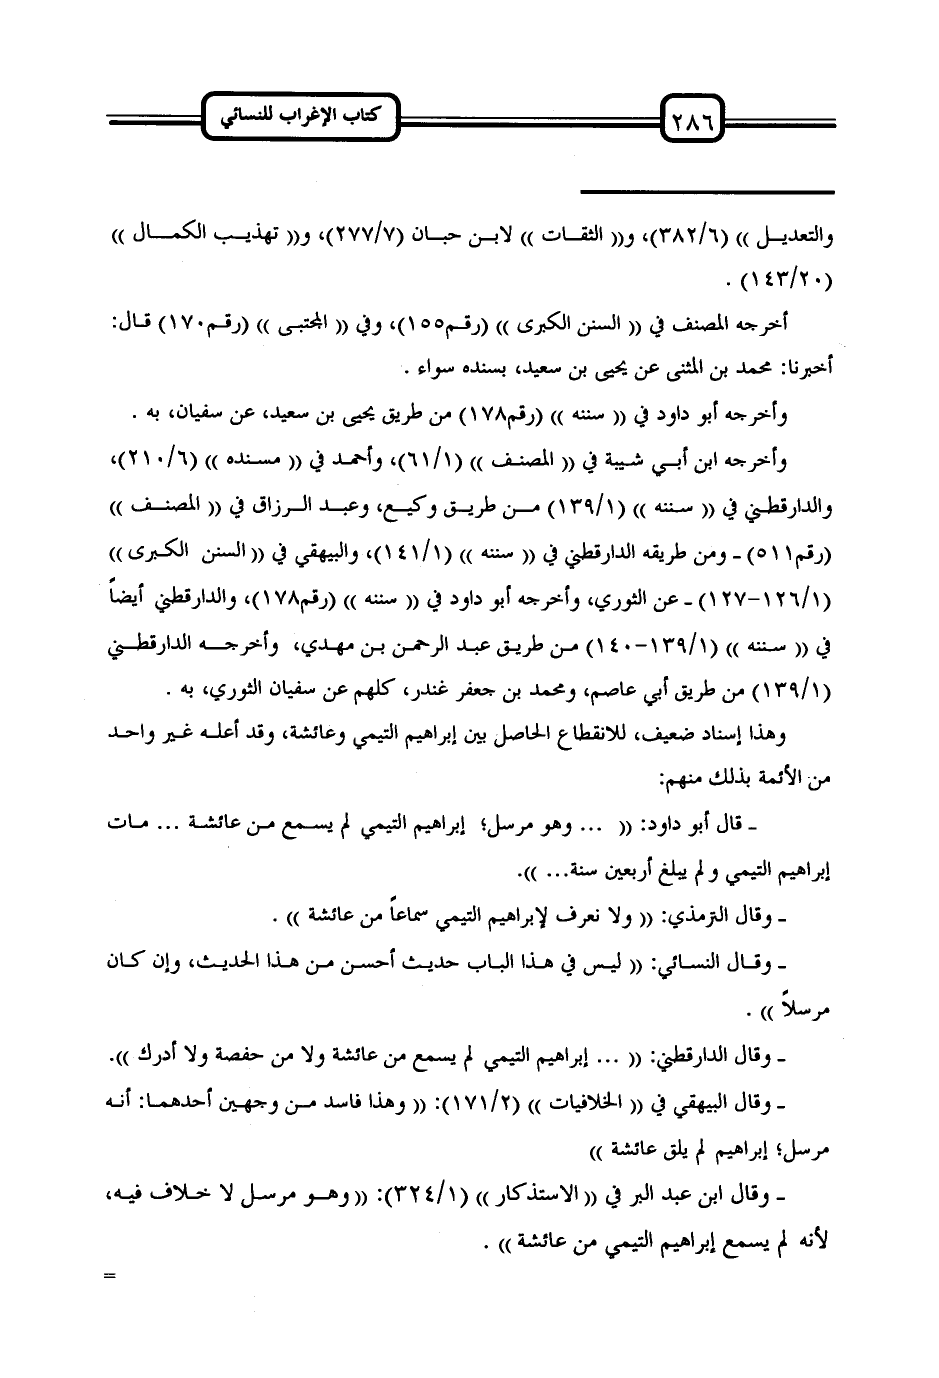 ٢٨٦
كتاب الإغراب للنسائي
والتعديل )) (٣٨٢/٦)، و(( الثقات )) لابن حبان (٢٧٧/٧)، و(( تهذيب الكمال ))
(١٤٣/٢٠) .
أخرجه المصنف في (( السنن الكبرى )) (رقم١٥٥)، وفي (( المجتبى )) (رقم١٧٠) قال:
أخبرنا: محمد بن المثنى عن يحيى بن سعيد، بسنده سواء .
وأخرجه أبو داود في (( سننه )) (رقم١٧٨) من طريق يحيى بن سعيد، عن سفيان، به .
وأخرجه ابن أبي شيبة في (( المصنف )) (٦١/١)، وأحمد في (( مسنده )) (٢١٠/٦)،
والدارقطني في (( سننه )) (١٣٩/١) من طريق وكيع، وعبد الرزاق في (( المصنف ))
(رقم٥١١) - ومن طريقه الدارقطني في (( سننه )) (١٤١/١)، والبيهقي في (( السنن الكبرى ))
(١٢٦/١-١٢٧) - عن الثوري، وأخرجه أبو داود في (( سننه )) (رقم١٧٨)، والدارقطني أيضاً
في (( سننه )) (١٣٩/١-١٤٠) من طريق عبد الرحمن بن مهدي، وأخرجه الدارقطني
(١٣٩/١) من طريق أبي عاصم، ومحمد بن جعفر غندر، كلهم عن سفيان الثوري، به .
وهذا إسناد ضعيف، للانقطاع الحاصل بين إبراهيم التيمي وعائشة، وقد أعله غير واحد
من الأئمة بذلك منهم:
- قال أبو داود: (( ... وهو مرسل؛ إبراهيم التيمي لم يسمع من عائشة ... مات
إبراهيم التيمي و لم يبلغ أربعين سنة... )).
- وقال الترمذي: (( ولا نعرف لإبراهيم التيمي سماعاً من عائشة )) .
- وقال النسائي: (( ليس في هذا الباب حديث أحسن من هذا الحديث، وإن كان
مرسلاً )) .
- وقال الدارقطني: (( ... إبراهيم التيمي لم يسمع من عائشة ولا من حفصة ولا أدرك )).
- وقال البيهقي في (( الخلافيات )) (١٧١/٢): (( وهذا فاسد من وجهين أحدهما: أنه
مرسل؛ إبراهيم لم يلق عائشة ))
- وقال ابن عبد البر في (( الاستذكار )) (٣٢٤/١): (( وهو مرسل لا خلاف فيه،
لأنه لم يسمع إبراهيم التيمي من عائشة )) .
=